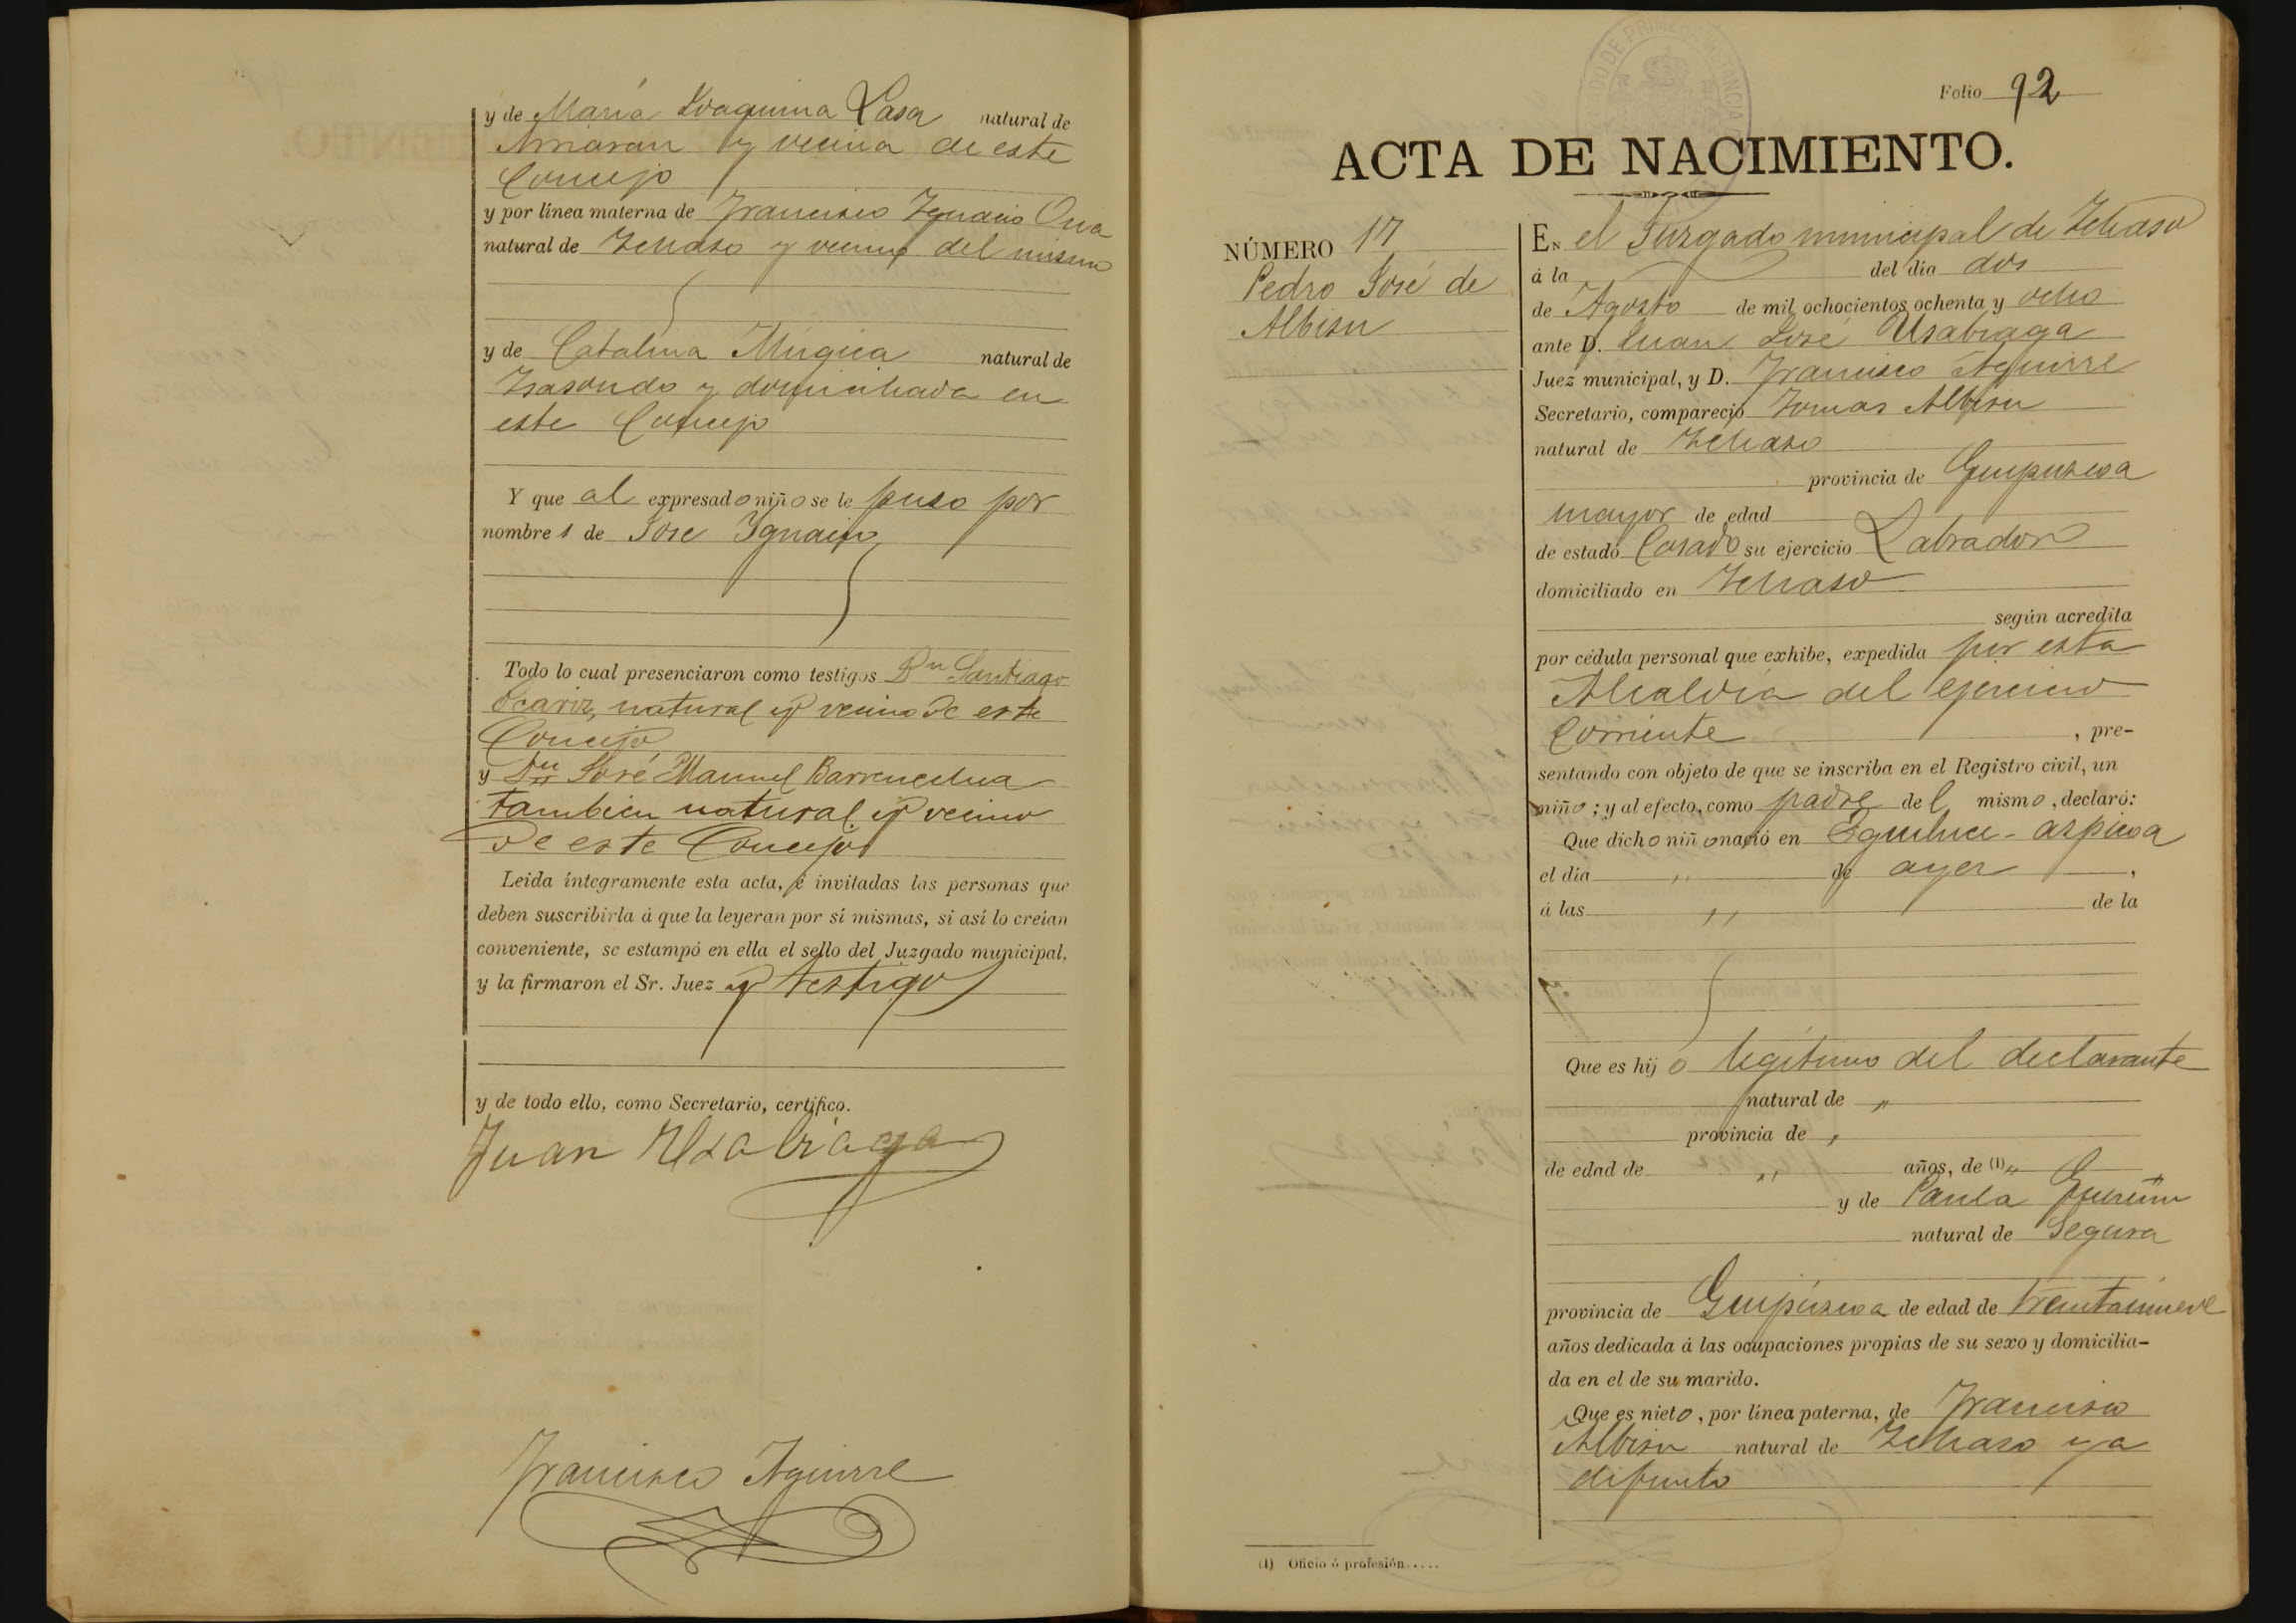 y de María Joaquina Lasa natural de
Arriaran y vecina de este
Concejo
y por línea materna de Francisco Ygnacio Oria
natural de Ichaso y vecino del mismo
y de Catalina Múgica natural de
Isasondo y domiciliada en
este Concejo
Y que al expresado niño se le puso por
nombre de José Ygnacio
Todo lo cual presenciaron como testigos Dn Santiago
natural y vecino de este
Concejo
y Dn José Manuel Barrenechea
tambien natural y vecino
de este Concejo
Leida íntegramente esta acta, é invitadas las personas que
deben suscribirla á que la leyeran por sí mismas, si así lo creían
conveniente, se estampó en ella el sello del Juzgado municipal,
y la firmaron el Sr. Juez y testigo
y de todo ello, como Secretario, certifico.
Juan Usabiaga
Francisco Aguirre
Folio 92
ACTA DE NACIMIENTO.
NÚMERO 17
Pedro José de
Albisu
EN el Juzgado municipal de Ichaso
á la del dia dos
de Agosto de mil ochocientos ochenta y ocho
ante D. Juan José Usabiaga
Juez municipal, y D. Francisco Aguirre
Secretario, compareció Tomas Albisu
natural de Ichaso
provincia de Guipuzcoa
mayor de edad
de estado Casado su ejercicio Labrador
domiciliado en Ichaso
según acredita
por cédula personal que exhibe, expedida por esta
Alcaldía del ejercicio
Corriente , pre-
sentando con objeto de que se inscriba en el Registro civil, un
niño; y al efecto, como padre del mismo, declaró:
Que dicho niño nació en Eguiluce-aspicoa
el día " de ayer ,
á las " de la
Que es hijo legítimo del declarante
natural de "
provincia de "
de edad de " años, de (1) "
y de Paula
natural de Segura
provincia de Guipúzcoa de edad de treintainueve
años dedicada á las ocupaciones propias de su sexo y domicilia-
da en el de su marido.
Que es nieto, por línea paterna, de Francisco
Albisu natural de Ichaso ya
difunto
(1) Oficio ó profesión.....